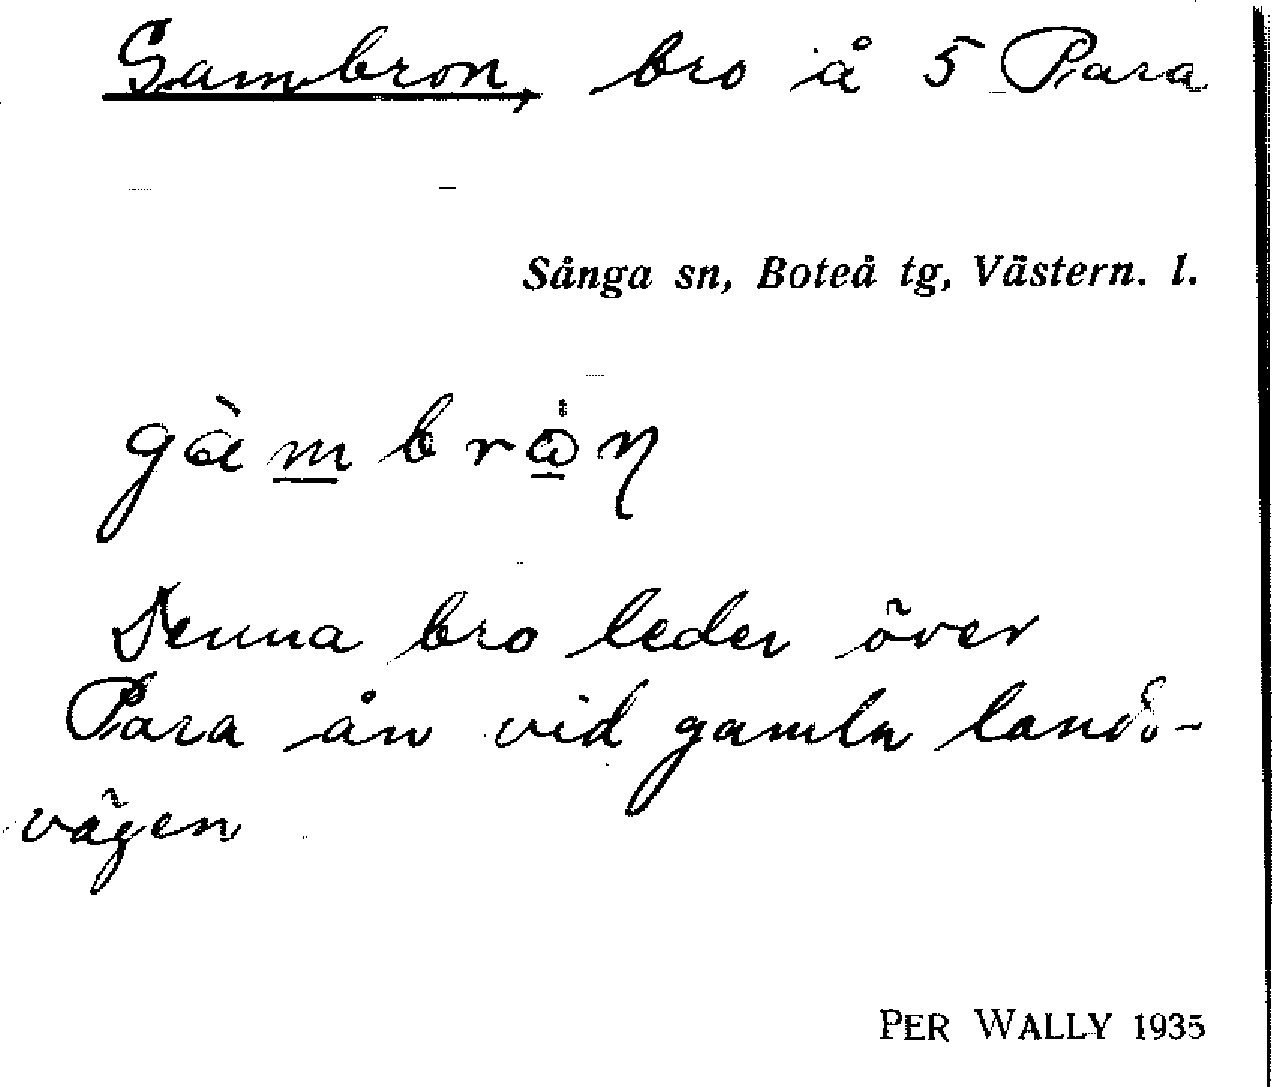 Gambron, bro å 5 Para
Sånga sn, Boteå tg, Västern. l.
gàmbrån
Denna bro leder över
Para ån vid gamla lands-
vägen
PER WALLY 1935